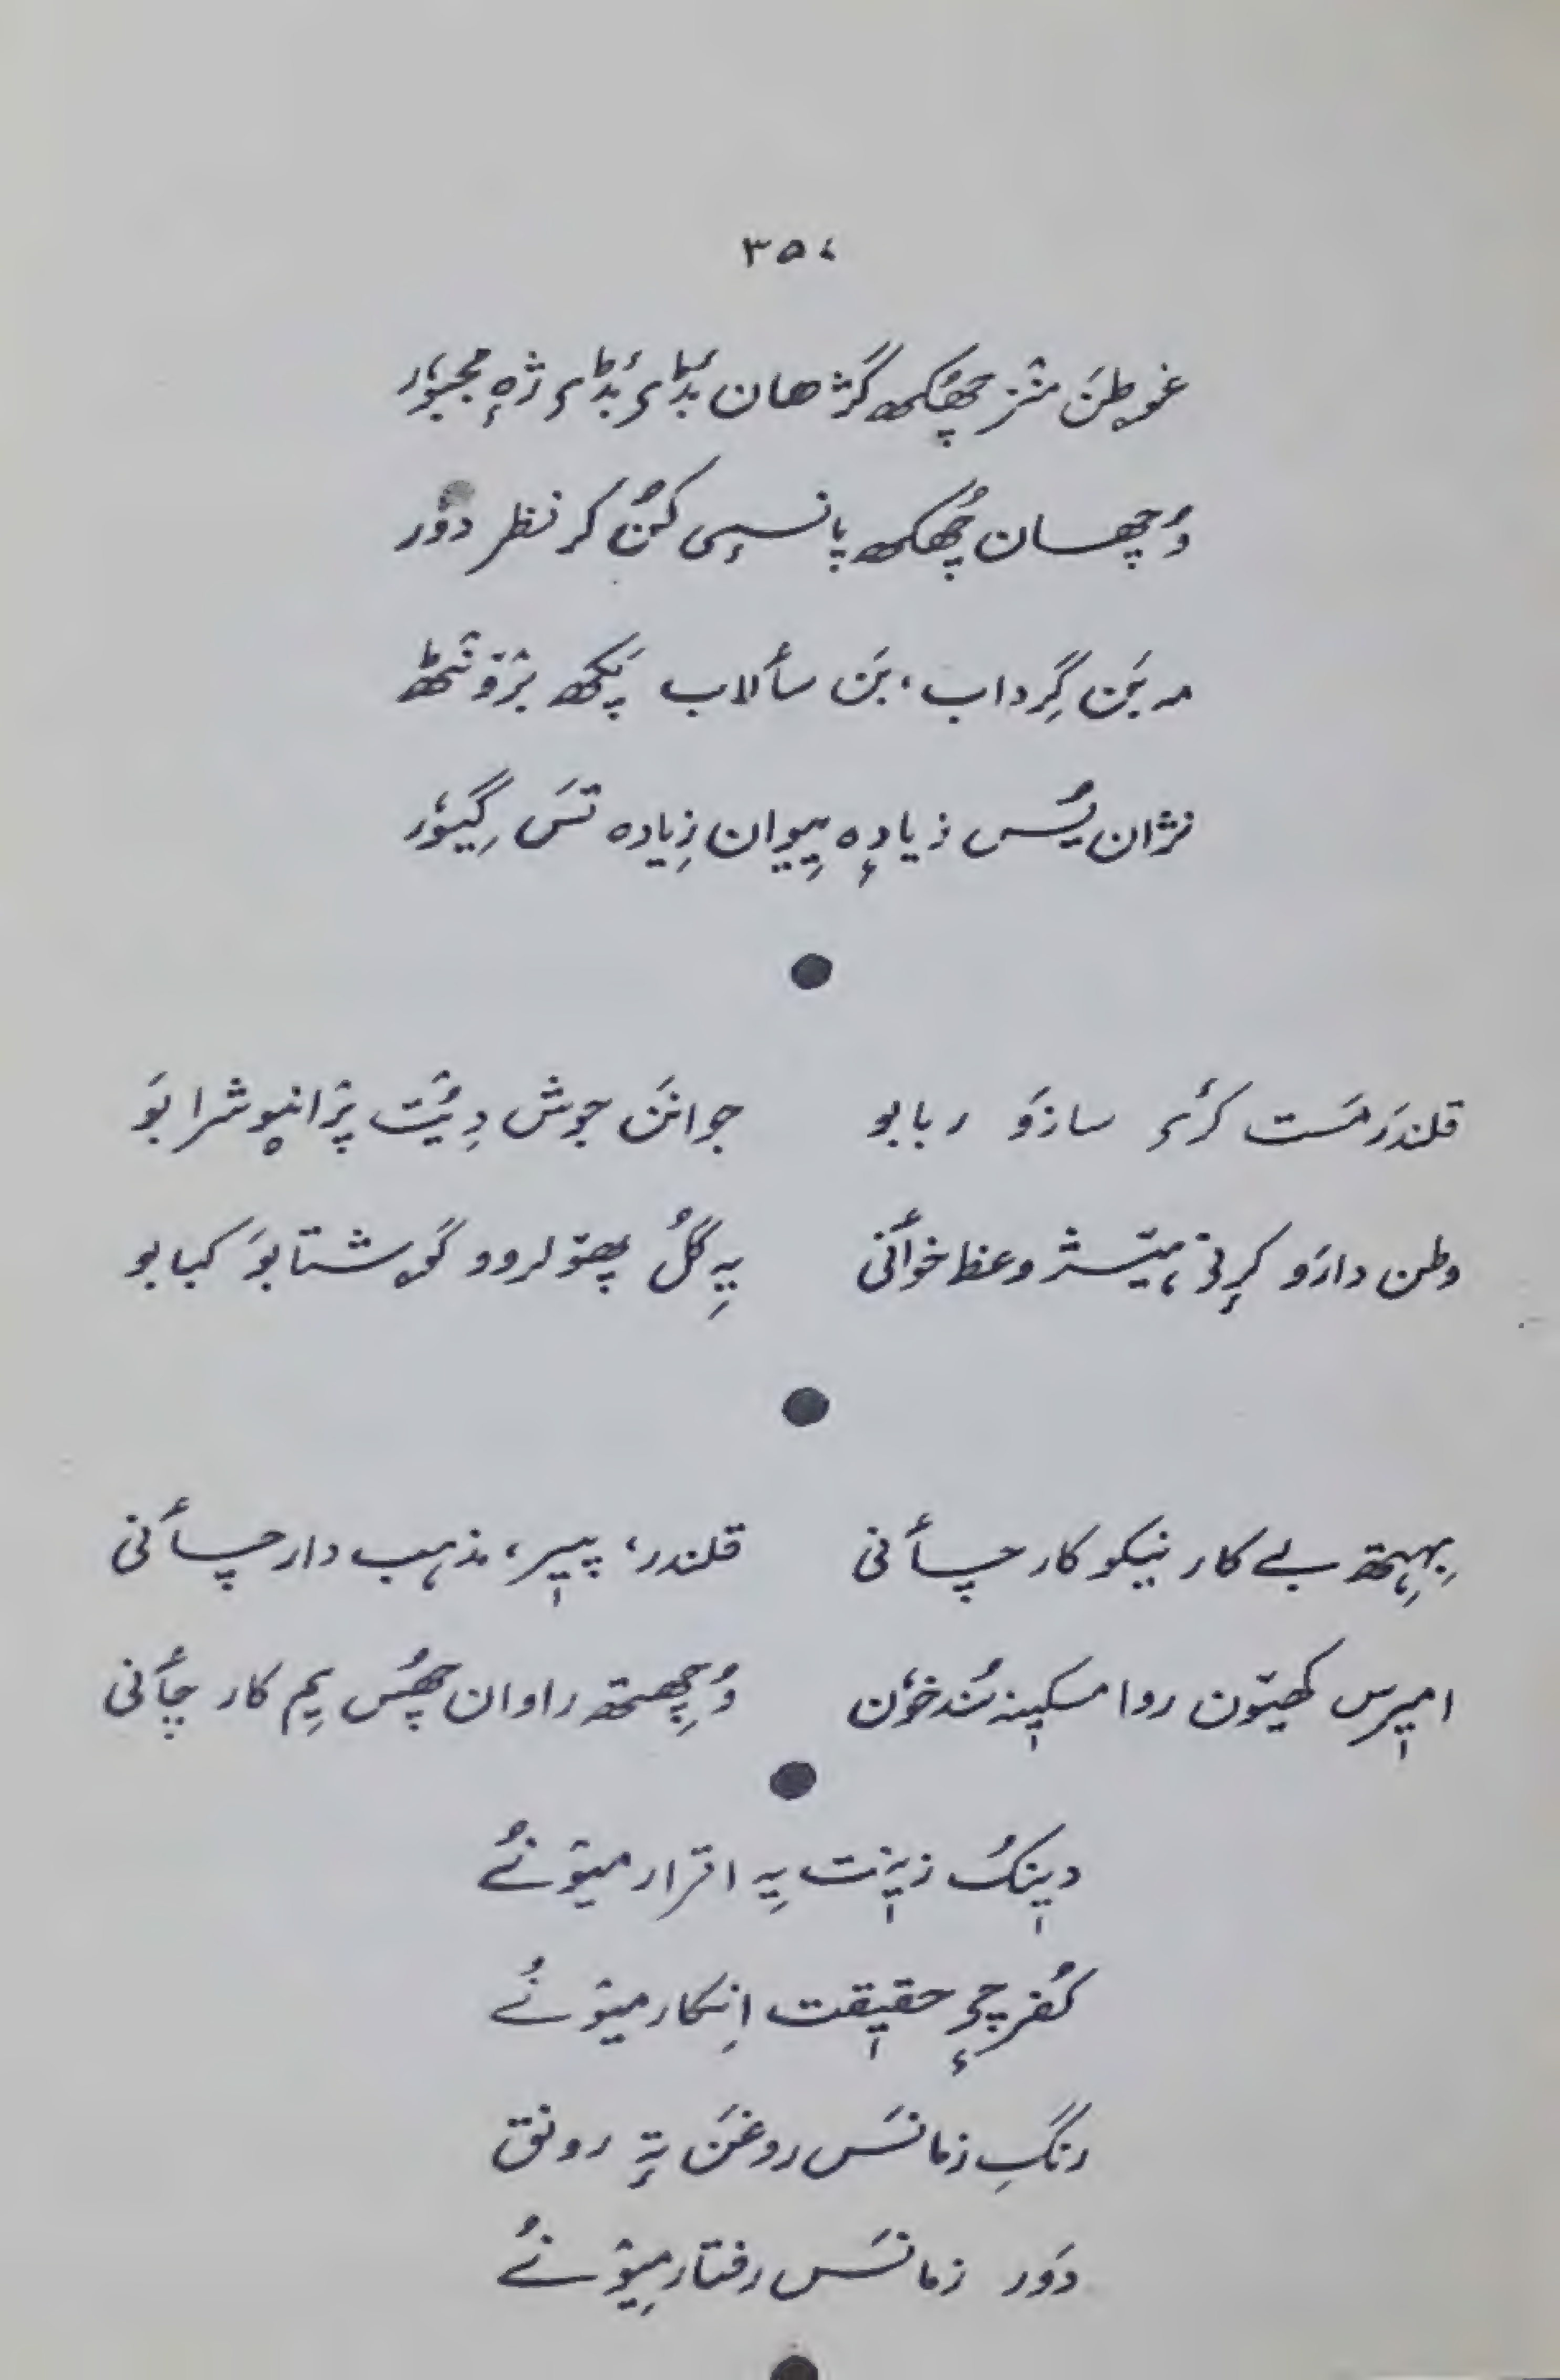 ۳۵۷
غوطن منٛز چھُکھ گژھان بُڈۍ بُڈۍ ژٕہ مجبوٗر
وُچھسان چھُکھ پانسٕی کُن کر نظر دوٗر
مہ بَن گِرداب، بَن سأלاب پَکھ برٛونٛٹھ
نژان یُس زیادٕہ پیوان زیادہ تَس گیوٗر
●
قلندَر مَست کرۍ سازَو ربابو
جوانَن جوش دِیُت پرٛانیو شرابَو
وطن دارَو کرٕنۍ ہیٚژ وعظ خوأنی
یہِ گُل پھۆلروو گوشتابَو کبابو
●
بِہِتھ بے کار نیکو کار چأنی
قلندر، پیٖر، مذہب دار چأنی
امیٖرس کھیٚون روا مسکیٖنہ سُند خوٗن
وُچِھتھ راوان چھُس یِم کار چأنی
●
دیٖنکُ زیٖنت یہِ اقرار میوٚنُے
کُفرچہٕ حقیٖقت اِنکار میوٚنُے
رنگِ زمانَس روغَن تہٕ رونق
دَور زمانَس رفتار میوٚنُے
●